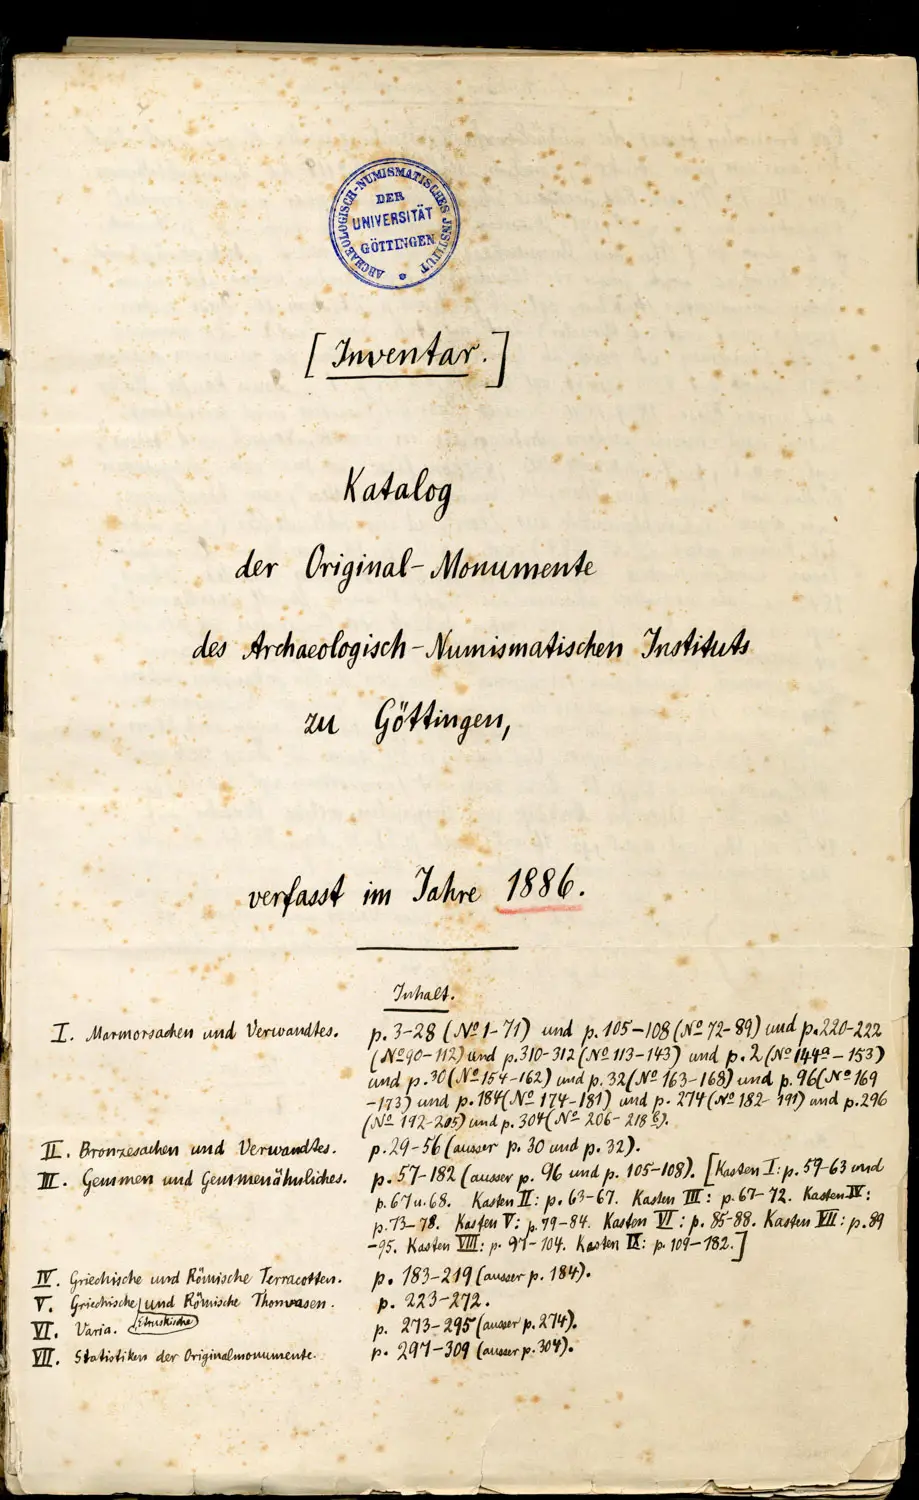 ARCHAEOLOGISCH-NUMISMATISCHES INSTITUT
DER
UNIVERSITÄT
GÖTTINGEN
[Inventar.]
Katalog
der Original-Monumente
des Archaeologisch-Numismatischen Instituts
zu Göttingen,
verfasst im Jahre 1886.
Inhalt.
I. Marmorsachen und Verwandtes. p. 3-28 (No 1-71) und p. 105-108 (No 72-89) und p. 220-222
(No 90-112) und p. 310-312 (No 113-143) und p. 2 (No 144a-153)
und p. 30 (No 154-162) und p. 32 (No 163-168) und p. 96 (No 169
-173) und p. 184 (No 174-181) und p. 274 (No 182-191) und p. 296
(No 192-205) und p. 304 (No 206-218).
II. Bronzesachen und Verwandtes. p. 29-56 (ausser p. 30 und p. 32).
III. Gemmen und Gemmenähnliches. p. 57-182 (ausser p. 96 und p. 105-108). [Kasten I: p. 59-63 und
p. 67 u. 68. Kasten II: p. 63-67. Kasten III: p. 67-72. Kasten IV:
p. 73-78. Kasten V: p. 79-84. Kasten VI: p. 85-88. Kasten VII: p. 89
-95. Kasten VIII: p. 97-104. Kasten IX: p. 109-182.]
IV. Griechische und Römische Terracotten. p. 183-219 (ausser p. 184).
V. Griechische, und Römische Thonvasen. p. 223-272.
Etruskische
VI. Varia. p. 273-295 (ausser p. 274).
VII. Statistiken der Originalmonumente. p. 297-309 (ausser p. 304).